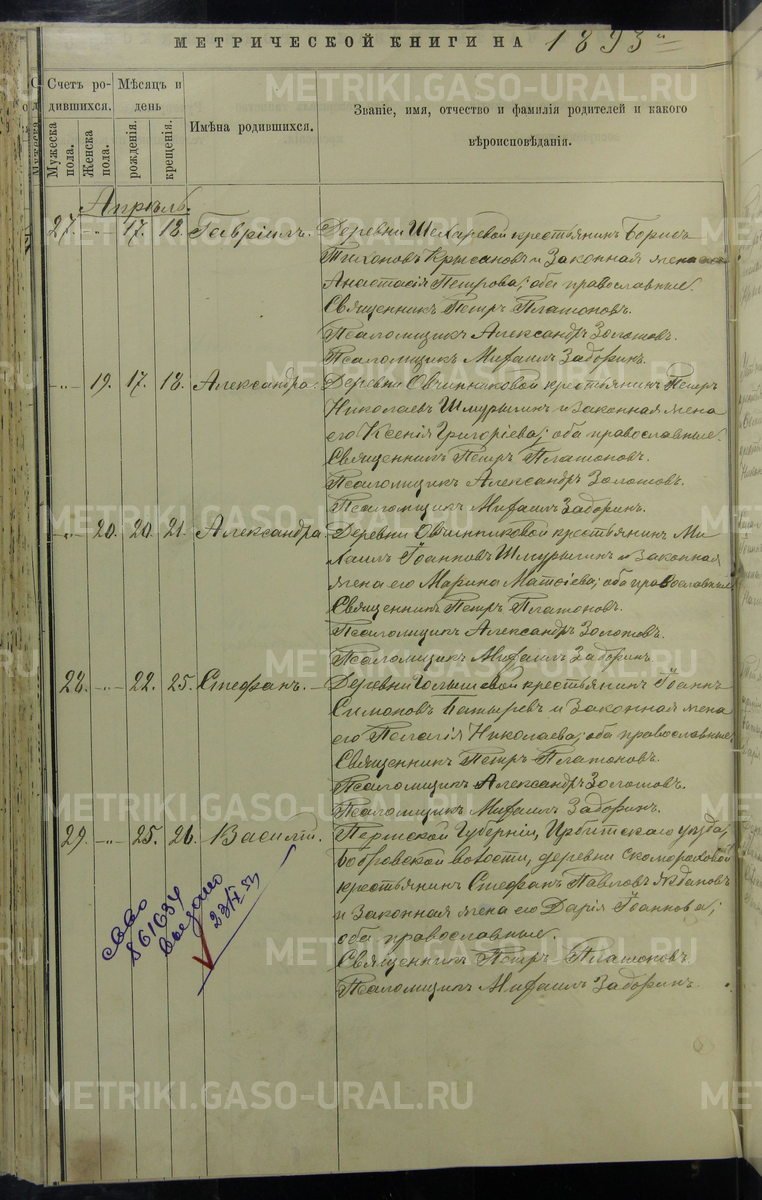 МЕТРИЧЕСКОЙ КНИГИ НА 1893
Счетъ родившихся.
Мѣсяцъ и день
Имѣна родившихся.
Званіе, имя, отчество и фамилія родителей и какого вѣроисповѣданія.
Мужеска пола.
Женска пола.
рожденія.
крещенія.
Апрѣль.
27. -„- 17. 18. Гавріилъ. Деревни крестьянинъ Борисъ
Тихоновъ Крысановъ и законная жена
Анастасія Петрова; оба православные.
Священникъ Петръ Платоновъ.
Псаломщикъ Александръ Золотовъ.
Псаломщикъ Михаилъ Задоринъ.
-„- 19. 17. 18. Александра. Деревни Овчинниковой крестьянинъ Петръ
Николаевъ Шмурыгинъ и законная жена
его Ксенія Григоріева; оба православные.
Священникъ Петръ Платоновъ.
Псаломщикъ Александръ Золотовъ.
Псаломщикъ Михаилъ Задоринъ.
-„- 20. 20. 21. Александра Деревни Овчинниковой крестьянинъ Ми-
хаилъ Іоанновъ Шмурыгинъ и законная
жена его Марина Матѳіева; оба православные.
Священникъ Петръ Платоновъ.
Псаломщикъ Александръ Золотовъ.
Псаломщикъ Михаилъ Задоринъ.
28. -„- 22. 25. Стефанъ. Деревни крестьянинъ Іоаннъ
Симоновъ Батыревъ и законная жена
его Пелагія Николаева; оба православные.
Священникъ Петръ Платоновъ.
Псаломщикъ Александръ Золотовъ.
Псаломщикъ Михаилъ Задоринъ.
29. -„- 25. 26. Василій. Пермской Губерніи, Ирбитскаго уѣзда,
Бобровской волости, деревни Скомороховой
крестьянинъ Стефанъ Павловъ Ждановъ
и законная жена его Дарія Іоаннова;
оба православные.
Священникъ Петръ Платоновъ.
Псаломщикъ Михаилъ Задоринъ.
861634
METRIKI.GASO-URAL.RU